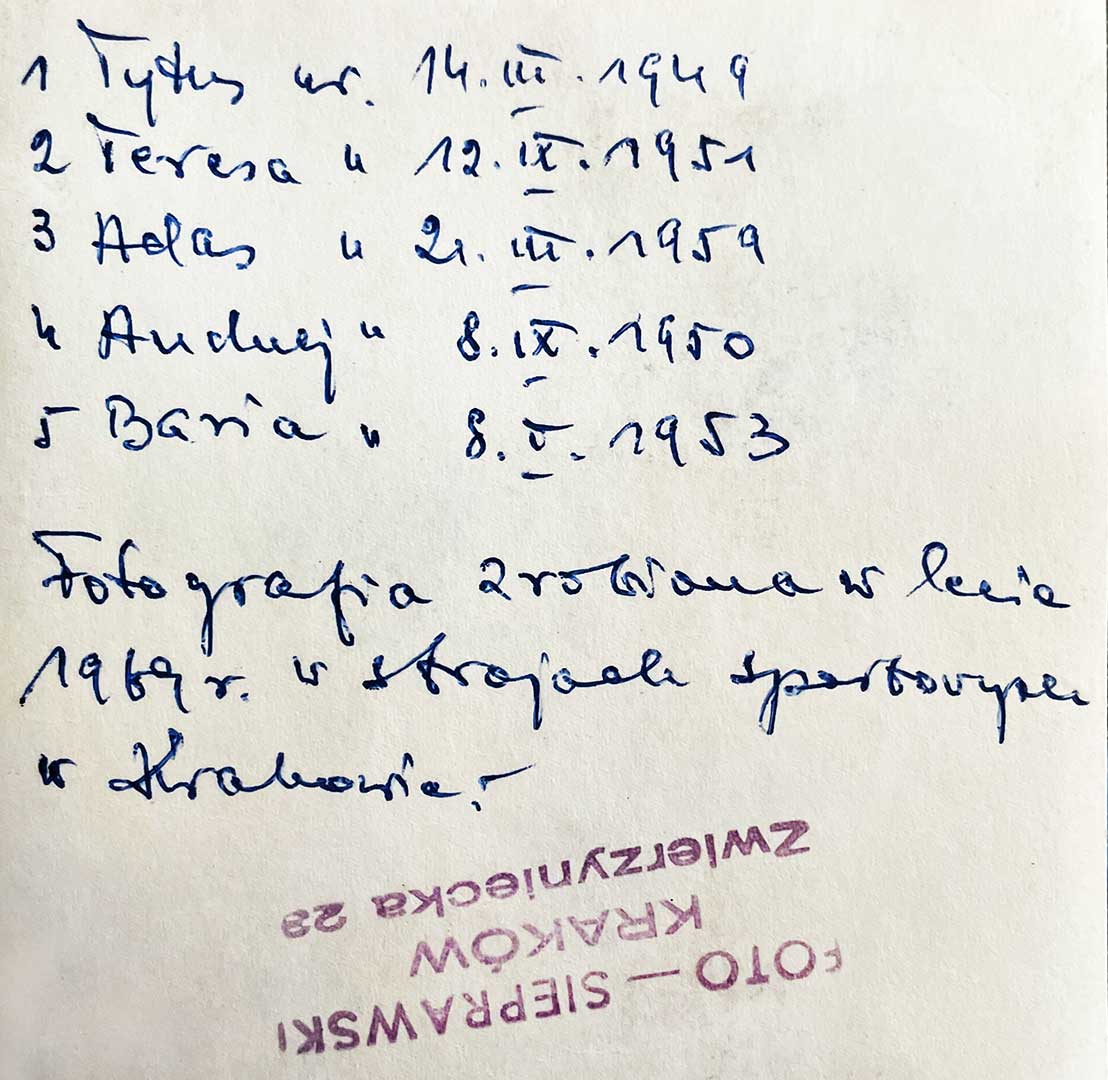 1 Tytus ur. 14.III.1949
2 Teresa " 12.IX.1951
3 Adaś " 21.III.1959
4 Andrzej " 8.IX.1950
5 Basia " 8.V.1953
Fotografia zrobiona w lecie
1969 r. w strojach sportowych
w Krakowie.
FOTO — SIEPRAWSKI
KRAKÓW
Zwierzyniecka 23